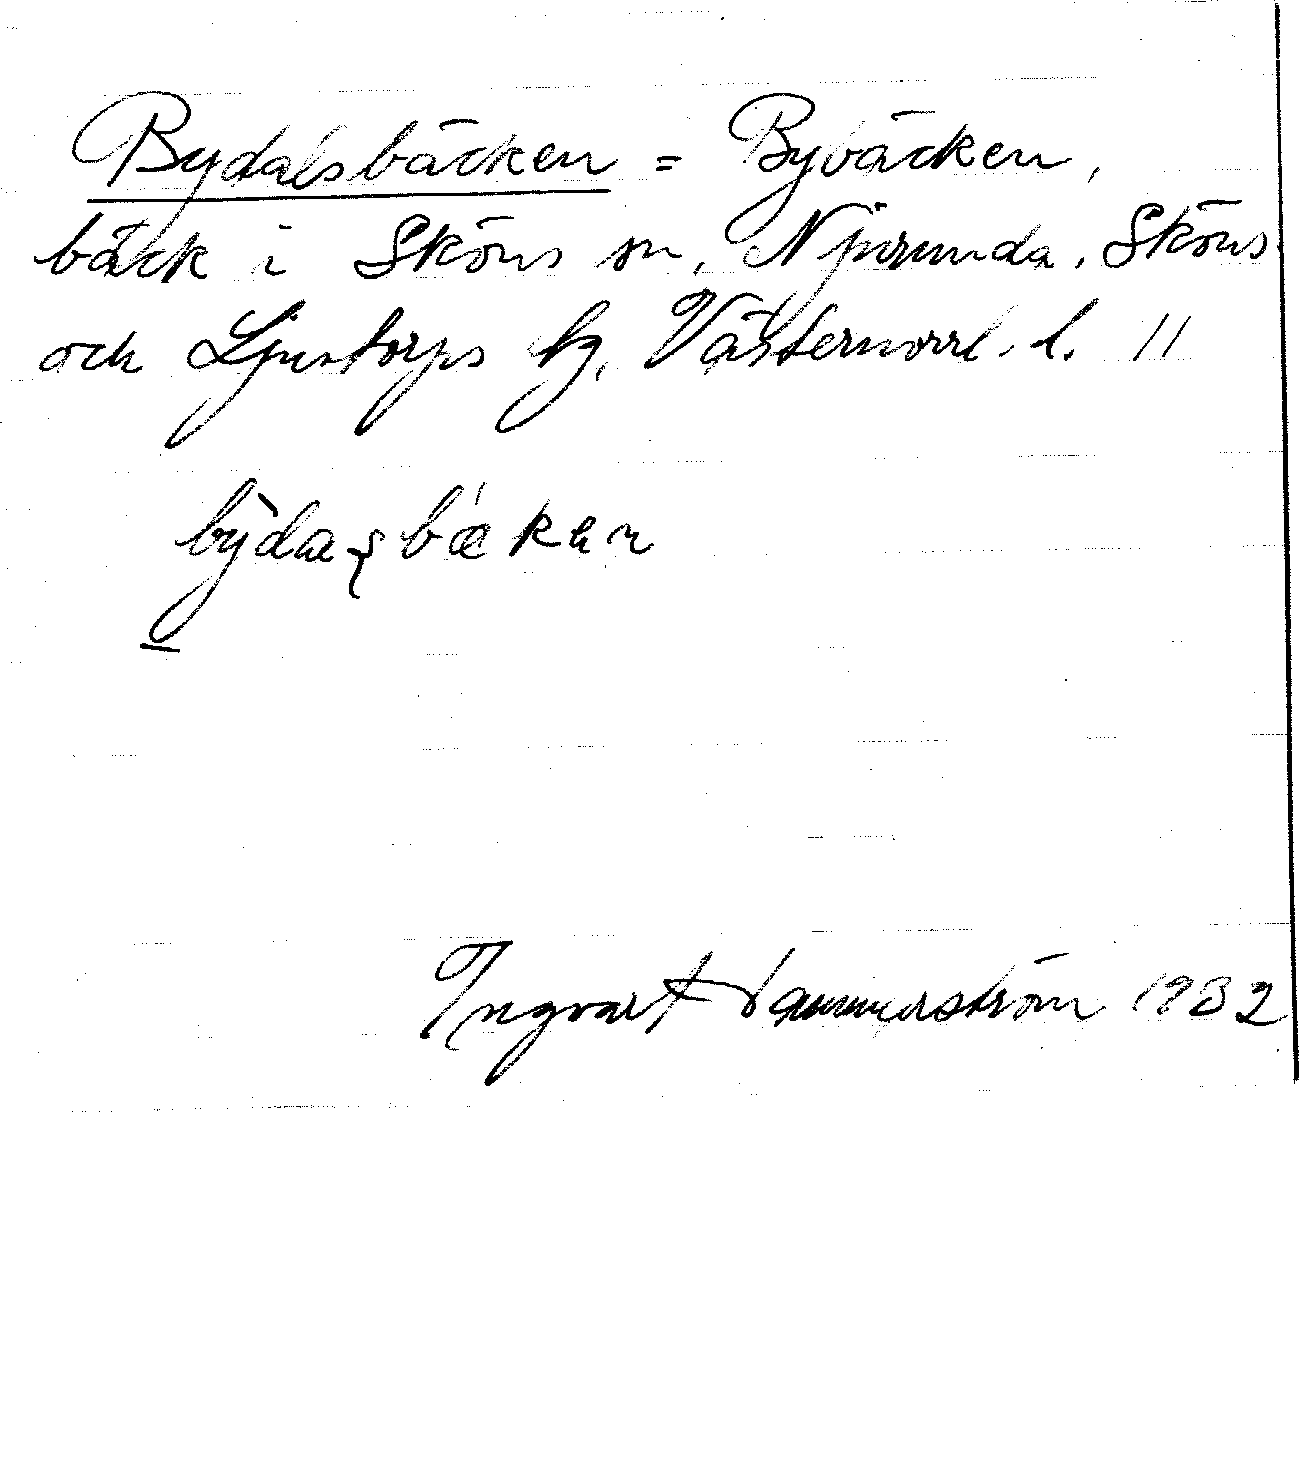 Bydalsbäcken = Bybäcken,
bäck i Sköns sn, Njurunda, Sköns
och Ljustorps tg, Västernorrl. l. //
bỳdaʂbǽken
Ingvart Hammarström 1932